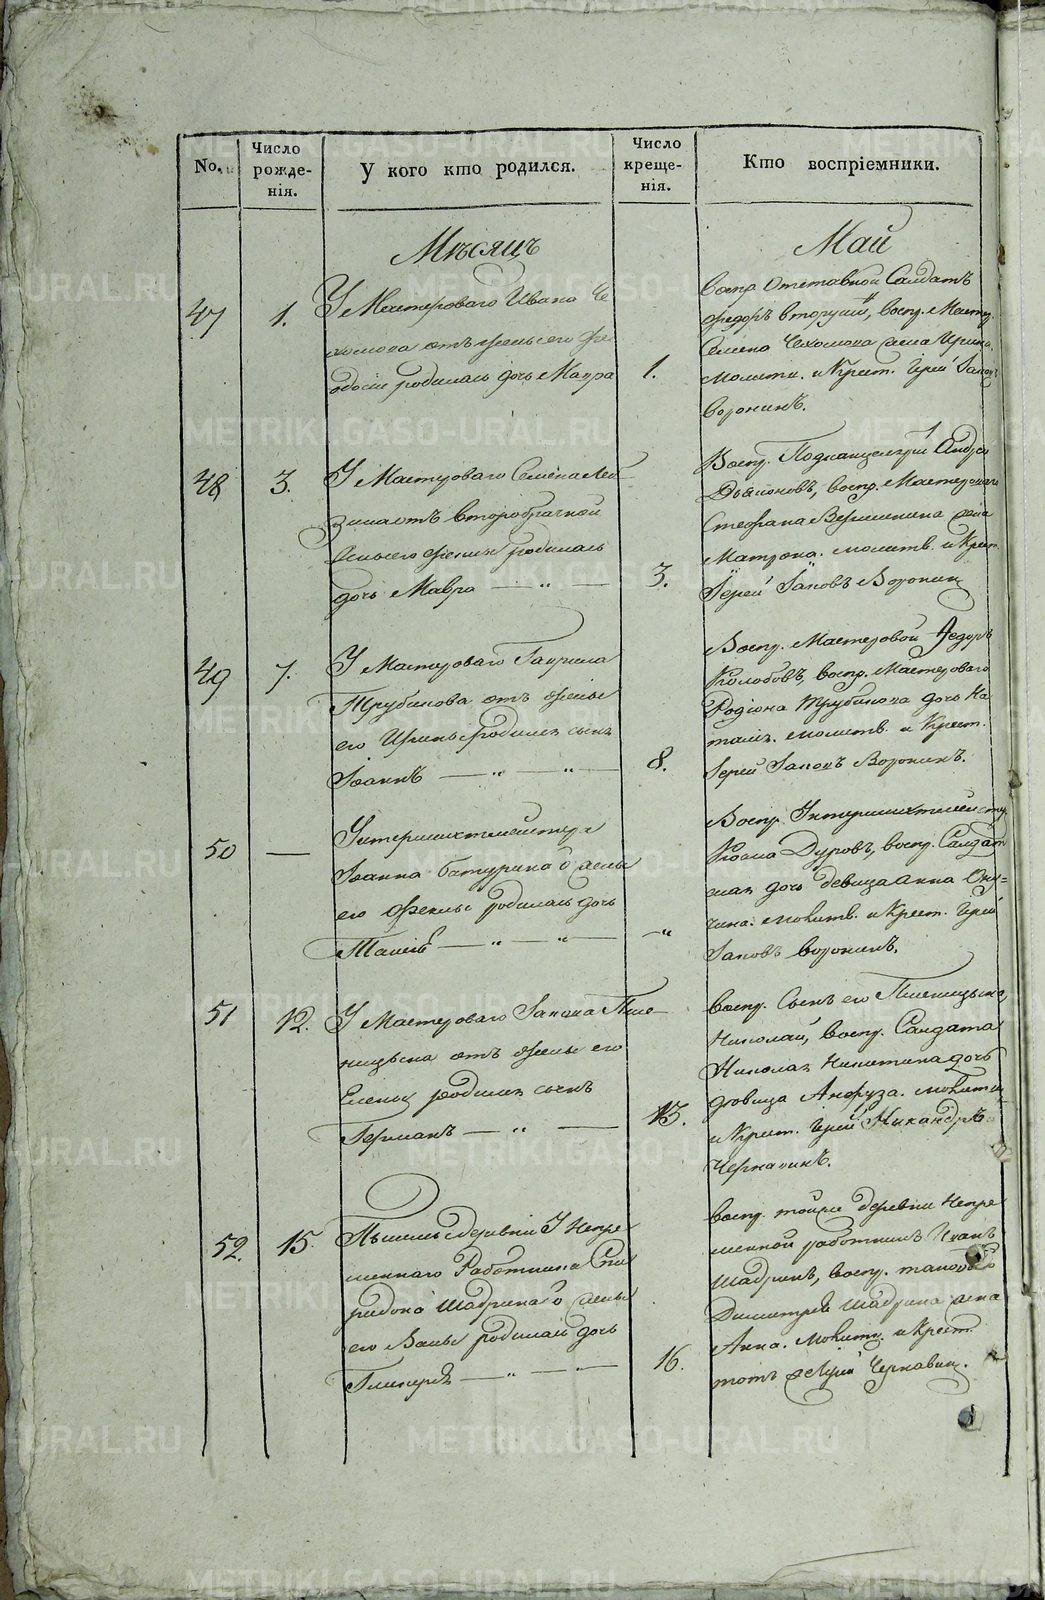 No.
Число рожде-
нія.
У кого кто родился.
Число креще-
нія.
Кто воспріемники.
Мѣсяцъ
Май
47
1.
У Мастероваго Ивана Че
хомова отъ жены его Фе
одосіи родилась дочь Мавра
1.
воспр. Отставной Салдатъ
Федоръ вторущій, воспр. Мастер.
Семена Чехомова жена Ирина.
молитв. и Крест. Іерей Іаковъ
Воронинъ.
48
3.
У Мастероваго Семена
отъ второбрачной
жены его родилась
дочь Мавра — „ —
3.
Воспр. Подканцеляр. Андрей
воспр. Мастероваго
Стефана Вершинина жена
Матрона. молитв. и Крест.
Іерей Іаковъ Воронин
49
7.
У Мастероваго Гаврила
Трубинова отъ жены
его Ирины родился сынъ
Іоаннъ — „ — „ —
8.
Воспр. Мастеровой Федоръ
Колобовъ, воспр. Мастероваго
Родіона Трубинова дочь На
талія. молитв. и Крест.
Іерей Іаковъ Воронинъ.
50
—
Унтершихтмейстера
Іоанна Батурина о жены
его Феклы родилась дочь
Таисіѣ — „ — „ —
— „
Воспр. Унтершихтмейстер
Козма Дуровъ, воспр. Салдат
ская дочь девица Анна
молитв. и Крест. Іерей
Іаковъ Воронинъ.
51
12.
У Мастероваго Іакова Пше
ницына отъ жены его
Елены родился сынъ
Германъ — „ —
13.
воспр. Сынъ его Пшеницына,
Николай, воспр. Салдата
Николая Никитина дочь
девица Анфуза. молитв.
и Крест. Іерей Никандръ
Чернавинъ.
52.
15.
деревни У Непре
меннаго Работника Спи
ридона Шадрина о жены
его родилась дочь
Гликерія — „ —
16.
воспр. тойже деревни Непре
менной работникъ Иванъ
Шадринъ, воспр. таковаго
Димитрія Шадрина жена
Анна. молитв. и Крест.
тотъ же Іерей Чернавин.
METRIKI.GASO-URAL.RU